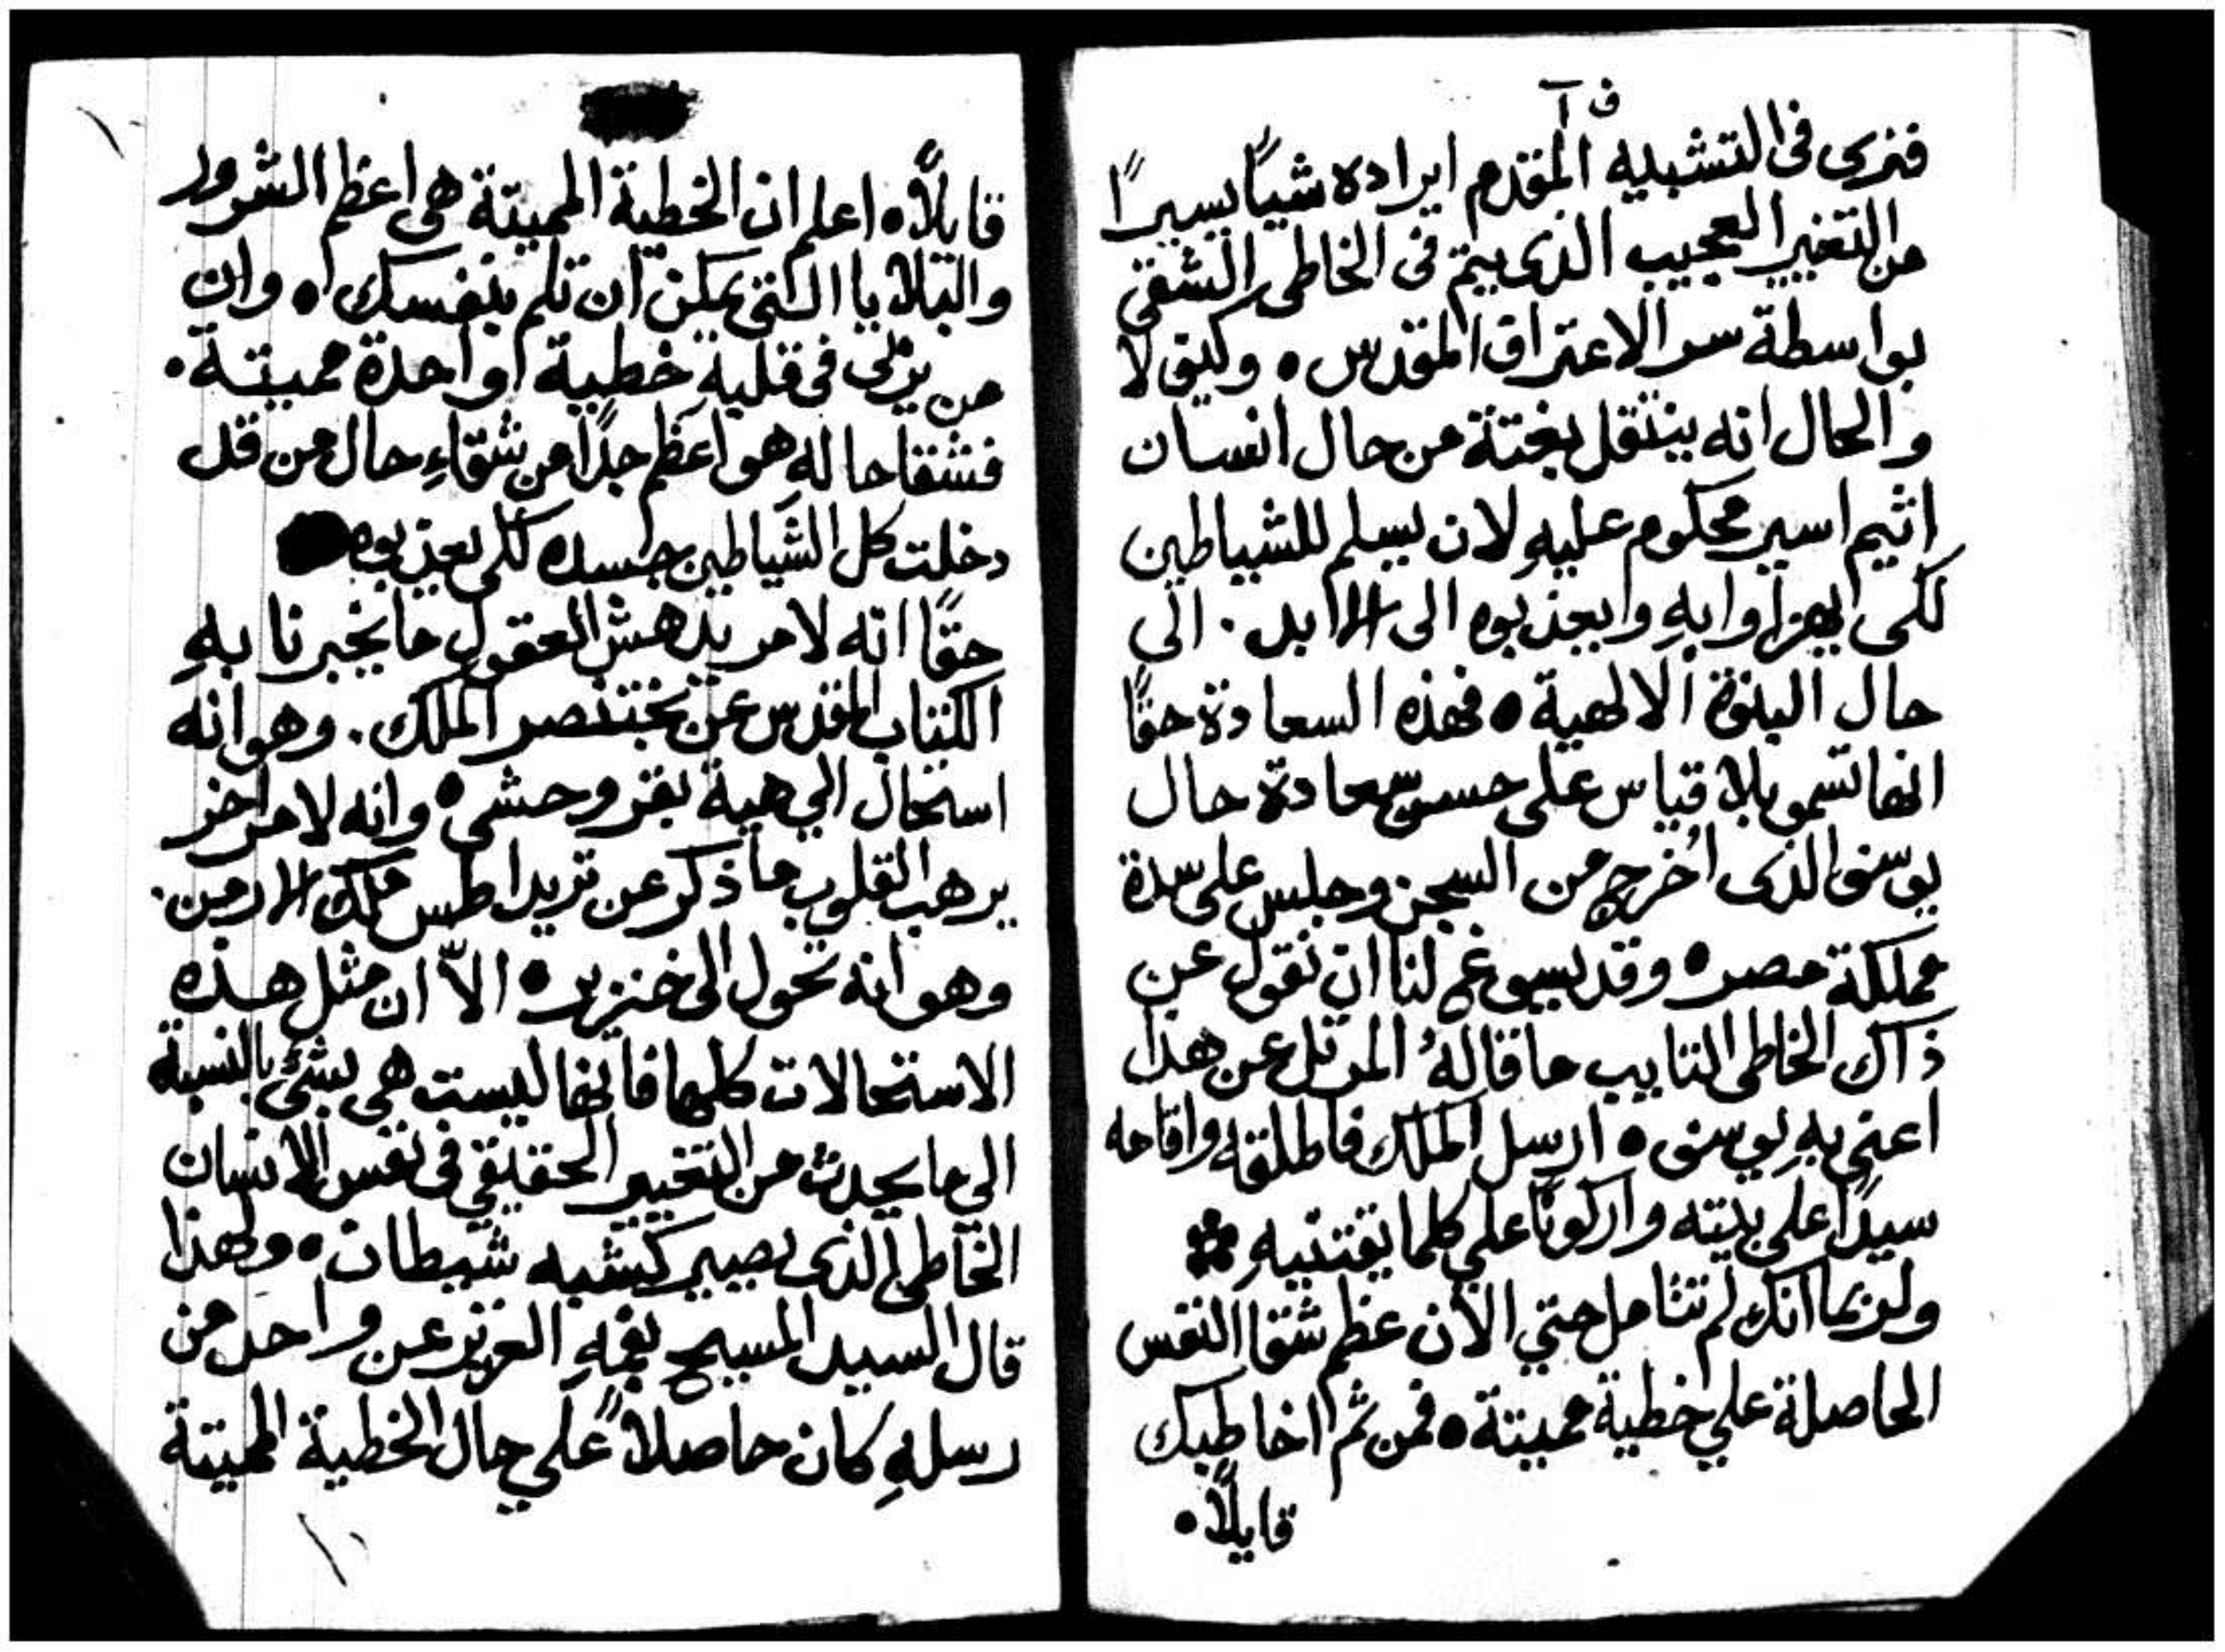 ف آ
فنرى فى التشبيه المقدم ايراده شيئًا يسيرًا
من التغيير العجيب الذى يتم فى الخاطى الشقى
بواسطة سر الاعتراف المقدس ه وكيف لا
والحال انه ينتقل بغتة من حال انسان
اثيم اسير محكوم عليهِ لان يسلم للشياطين
لكى يهزاوا بهِ وايعذبوه الى الابد . الى
حال البنوة الالهية ه فهذه السعادة حقًا
انها تسمو بلا قياس على حسن سعادة حال
يوسف الذى اُخرج من السجن وجلس على سدة
مملكة مصر ه وقد يسوغ لنا ان نقول عن
ذاك الخاطى التايب ما قالهُ المرتل عن هذا
اعني بهِ يوسف ه ارسل الملك فاطلقه واقامه
سيدًا على بيته واركونًا علي كلما يقتنيهِ
ولربما انك لم تتامل حتي الآن عظم شقا النفس
الحاصلة علي خطية مميتة ه فمن ثم اخاطبك
قايلاً ه
قايلاً ه اعلم ان الخطية المميتة هى اعظم الشرور
والبلايا التى يمكن ان تلم بنفسك ه وان
من يربى فى قلبهِ خطية واحدة مميتة .
فشقا حالهِ هو اعظم جدًا من شقاءِ حال من قد
دخلت كل الشياطين جسده لكى يعذبوه
حقًا انه لامر يدهش العقول ما يخبرنا بهِ
الكتاب المقدس عن بختنصر الملك . وهو انه
استحال الي هية بقر وحشى ه وانه لامر اخر
يرهب القلوب ما ذكر عن تريداطس ملك الارمن .
وهو انه تحول الى خنزير ه الاّ ان مثل هذه
الاستحالات كلها فانها ليست هى بشئ بالنسبة
الي ما يحدث من التغيير الحقيقي فى نفس الانسان
الخاطى الذى يصير كشبه شيطان ه ولهذا
قال السيد المسيح بفمهِ العزيز عن واحد من
رسلهِ كان حاصلاً علي حال الخطية المميتة